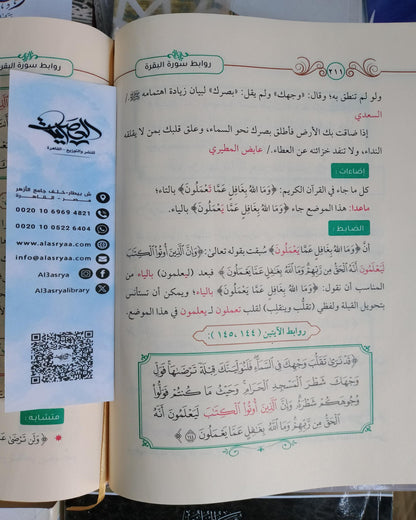 روابط سورة البقرة
٢١١
ولو لم تنطق به؛ وقال: «وجهك» ولم يقل: «بصرك» لبيان زيادة اهتمامه ﷺ./
السعدي
إذا ضاقت بك الأرض فأطلق بصرك نحو السماء، وعلق قلبك بمن لا يقلقه
النداء، ولا تنفد خزائنه عن العطاء./ عايض المطيري
إضاءات:
كل ما جاء في القرآن الكريم: ﴿وَمَا اللَّهُ بِغَافِلٍ عَمَّا تَعْمَلُونَ﴾ بالتاء؛
ماعدا: هذا الموضع جاء ﴿وَمَا اللَّهُ بِغَافِلٍ عَمَّا يَعْمَلُونَ﴾ بالياء.
الضابط:
أنَّ ﴿وَمَا اللَّهُ بِغَافِلٍ عَمَّا يَعْمَلُونَ﴾ سُبقت بقوله تعالىٰ: ﴿وَإِنَّ الَّذِينَ أُوتُوا الْكِتَابَ
لَيَعْلَمُونَ أَنَّهُ الْحَقُّ مِن رَّبِّهِمْ وَمَا اللَّهُ بِغَافِلٍ عَمَّا يَعْمَلُونَ﴾ فبعد (ليعلمون) بالياء من
المناسب أن نقول: ﴿وَمَا اللَّهُ بِغَافِلٍ عَمَّا يَعْمَلُونَ﴾ بالياء؛ ويمكن أن تستأنس
بتحويل القبلة ولفظي (تقلُّب وينقلب) لقلب تعملون لـيعلمون في هذا الموضع.
روابط الآيتين (١٤٤، ١٤٥):
﴿قَدْ نَرَىٰ تَقَلُّبَ وَجْهِكَ فِي السَّمَاءِ فَلَنُوَلِّيَنَّكَ قِبْلَةً تَرْضَاهَا فَوَلِّ
وَجْهَكَ شَطْرَ الْمَسْجِدِ الْحَرَامِ وَحَيْثُ مَا كُنتُمْ فَوَلُّوا
وُجُوهَكُمْ شَطْرَهُ وَإِنَّ الَّذِينَ أُوتُوا الْكِتَابَ لَيَعْلَمُونَ أَنَّهُ
الْحَقُّ مِن رَّبِّهِمْ وَمَا اللَّهُ بِغَافِلٍ عَمَّا يَعْمَلُونَ ١٤٤﴾
روابط سورة البقرة
العصرية
للنشر والتوزيع - القاهرة
ش بيطار-خلف جامع الأزهر
مصر - القاهرة
0020 10 6969 4821
0020 10 0522 6404
www.alasryaa.com
info@alasryaa.com
Al3asrya
Al3asryalibrary
متشابه:
﴿وَلَن تَرْضَىٰ